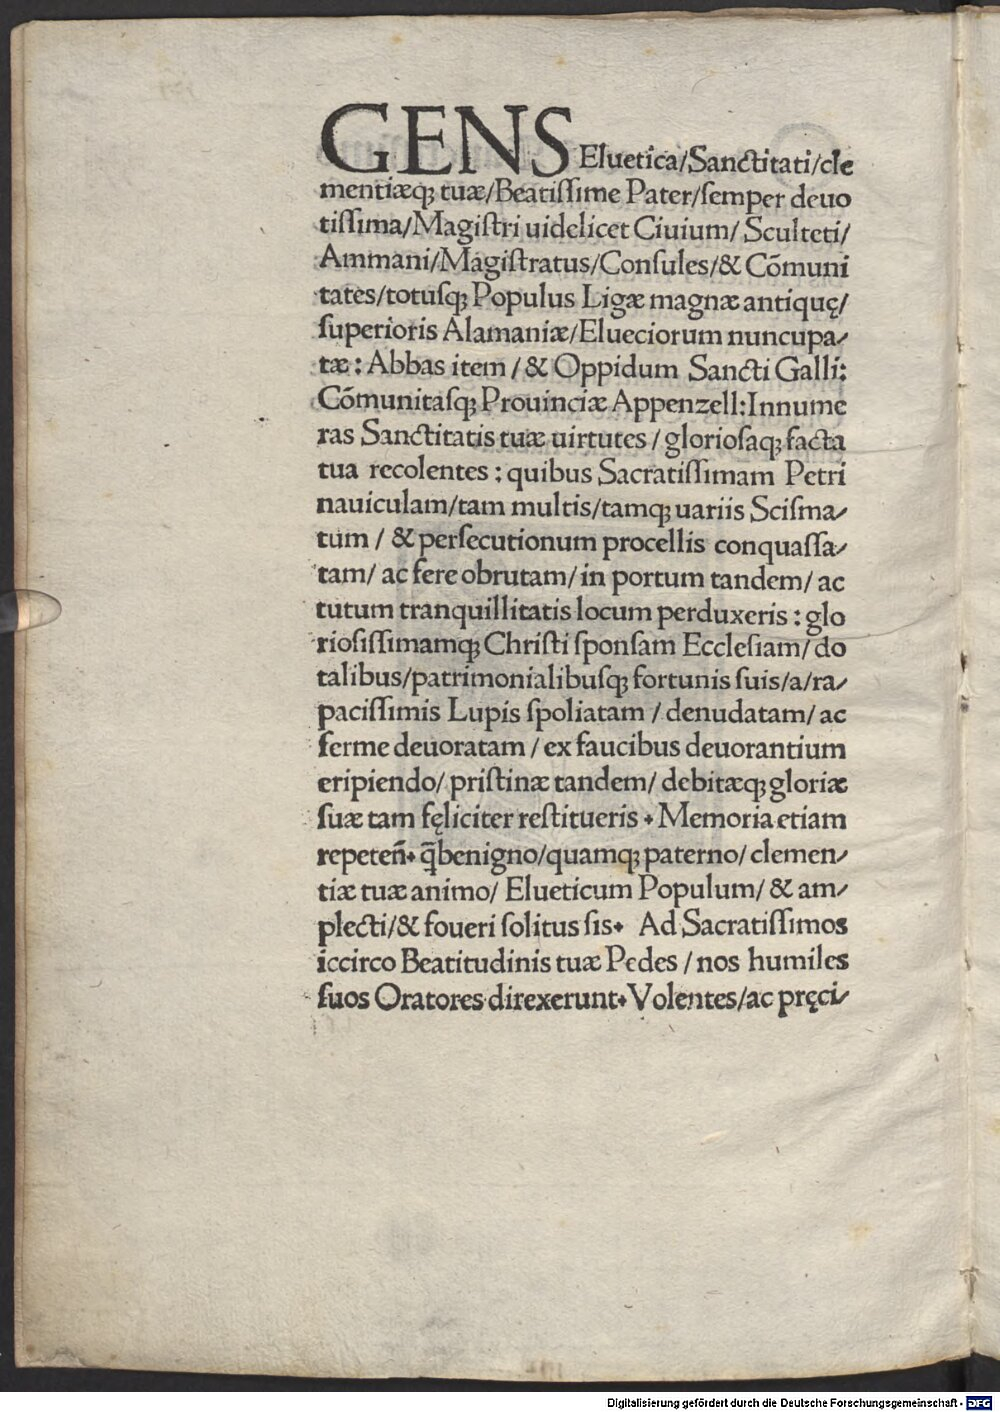 GENS Eluetica/Sanctitati/cle
mentiæq; tuæ/Beatiſſime Pater/ſemper deuo
tiſſima/Magiſtri uidelicet Ciuium/ Sculteti/
Ammani/Magiſtratus/Conſules/& Cōmuni
tates/totuſq; Populus Ligæ magnæ antiquę/
ſuperioris Alamaniæ/Elueciorum nuncupa-
tæ: Abbas item/& Oppidum Sancti Galli:
Cōmunitaſq; Prouinciæ Appenzell: Innume
ras Sanctitatis tuæ uirtutes/glorioſaq; facta
tua recolentes: quibus Sacratiſſimam Petri
nauiculam/tam multis/tamq; uariis Sciſma-
tum/ & perſecutionum procellis conquaſſa-
tam/ ac fere obrutam/in portum tandem/ ac
tutum tranquillitatis locum perduxeris: glo
rioſiſſimamq; Chriſti ſponſam Eccleſiam/ do
talibus/patrimonialibuſq; fortunis ſuis/a/ra-
paciſſimis Lupis ſpoliatam/denudatam/ ac
ferme deuoratam/ex faucibus deuorantium
eripiendo/priſtinæ tandem/debitæq; gloriæ
ſuæ tam fęliciter reſtitueris. Memoria etiam
repeten̄. q̄benigno/quamq; paterno/clemen-
tiæ tuæ animo/ Elueticum Populum/ & am-
plecti/& foueri ſolitus ſis. Ad Sacratiſſimos
iccirco Beatitudinis tuæ Pedes/nos humiles
ſuos Oratores direxerunt. Volentes/ac pręci-
Digitalisierung gefördert durch die Deutsche Forschungsgemeinschaft - DFG